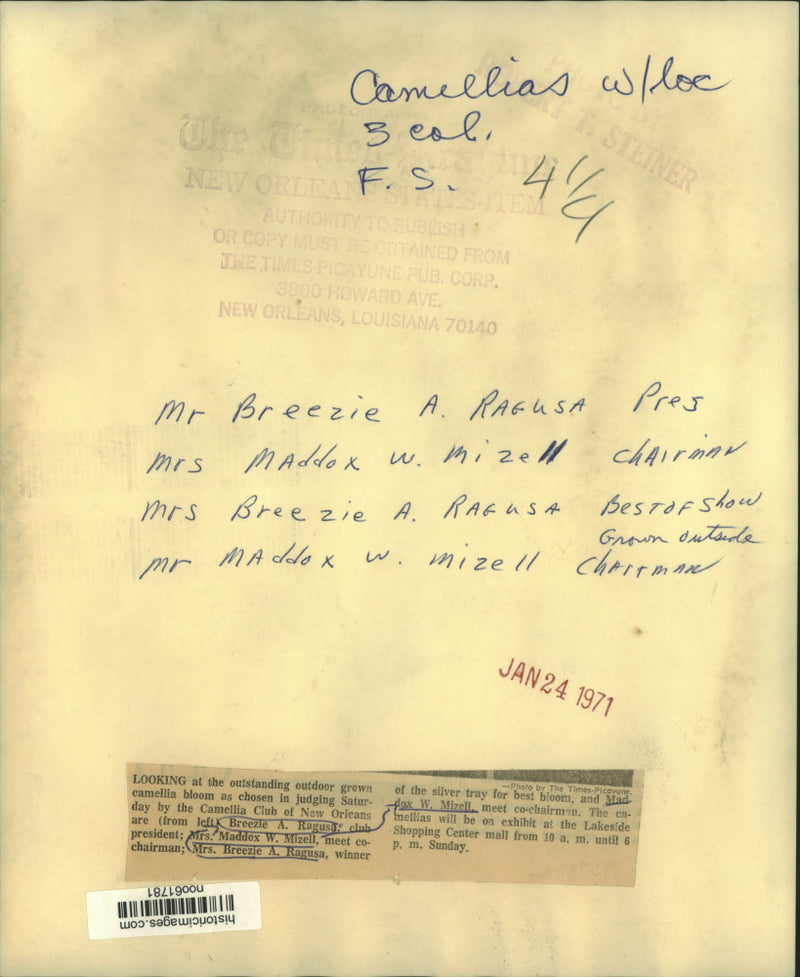 Camellias w/loc
3 col.
F. S. 4 1/4
ROBERT F. STEINER
The Times-Picayune
NEW ORLEANS STATES-ITEM
AUTHORITY TO PUBLISH
OR COPY MUST BE OBTAINED FROM
THE TIMES-PICAYUNE PUB. CORP.
3800 HOWARD AVE.
NEW ORLEANS, LOUISIANA 70140
Mr Breezie A. RAGUSA Pres
Mrs MAddox W. Mizell CHAIrMAN
Mrs Breezie A. RAGUSA BESTOFShow
Grown outside
Mr MAddox W. Mizell ChAIrMAN
JAN 24 1971
LOOKING at the outstanding outdoor grown
camellia bloom as chosen in judging Satur-
day by the Camellia Club of New Orleans
are (from left) Breezie A. Ragusa, club
president; Mrs. Maddox W. Mizell, meet co-
chairman; Mrs. Breezie A. Ragusa, winner
—Photo by The Times-Picayune.
of the silver tray for best bloom, and Mad-
dox W. Mizell, meet co-chairman. The ca-
mellias will be on exhibit at the Lakeside
Shopping Center mall from 10 a. m. until 6
p. m. Sunday.
historicimages.com
noo61781